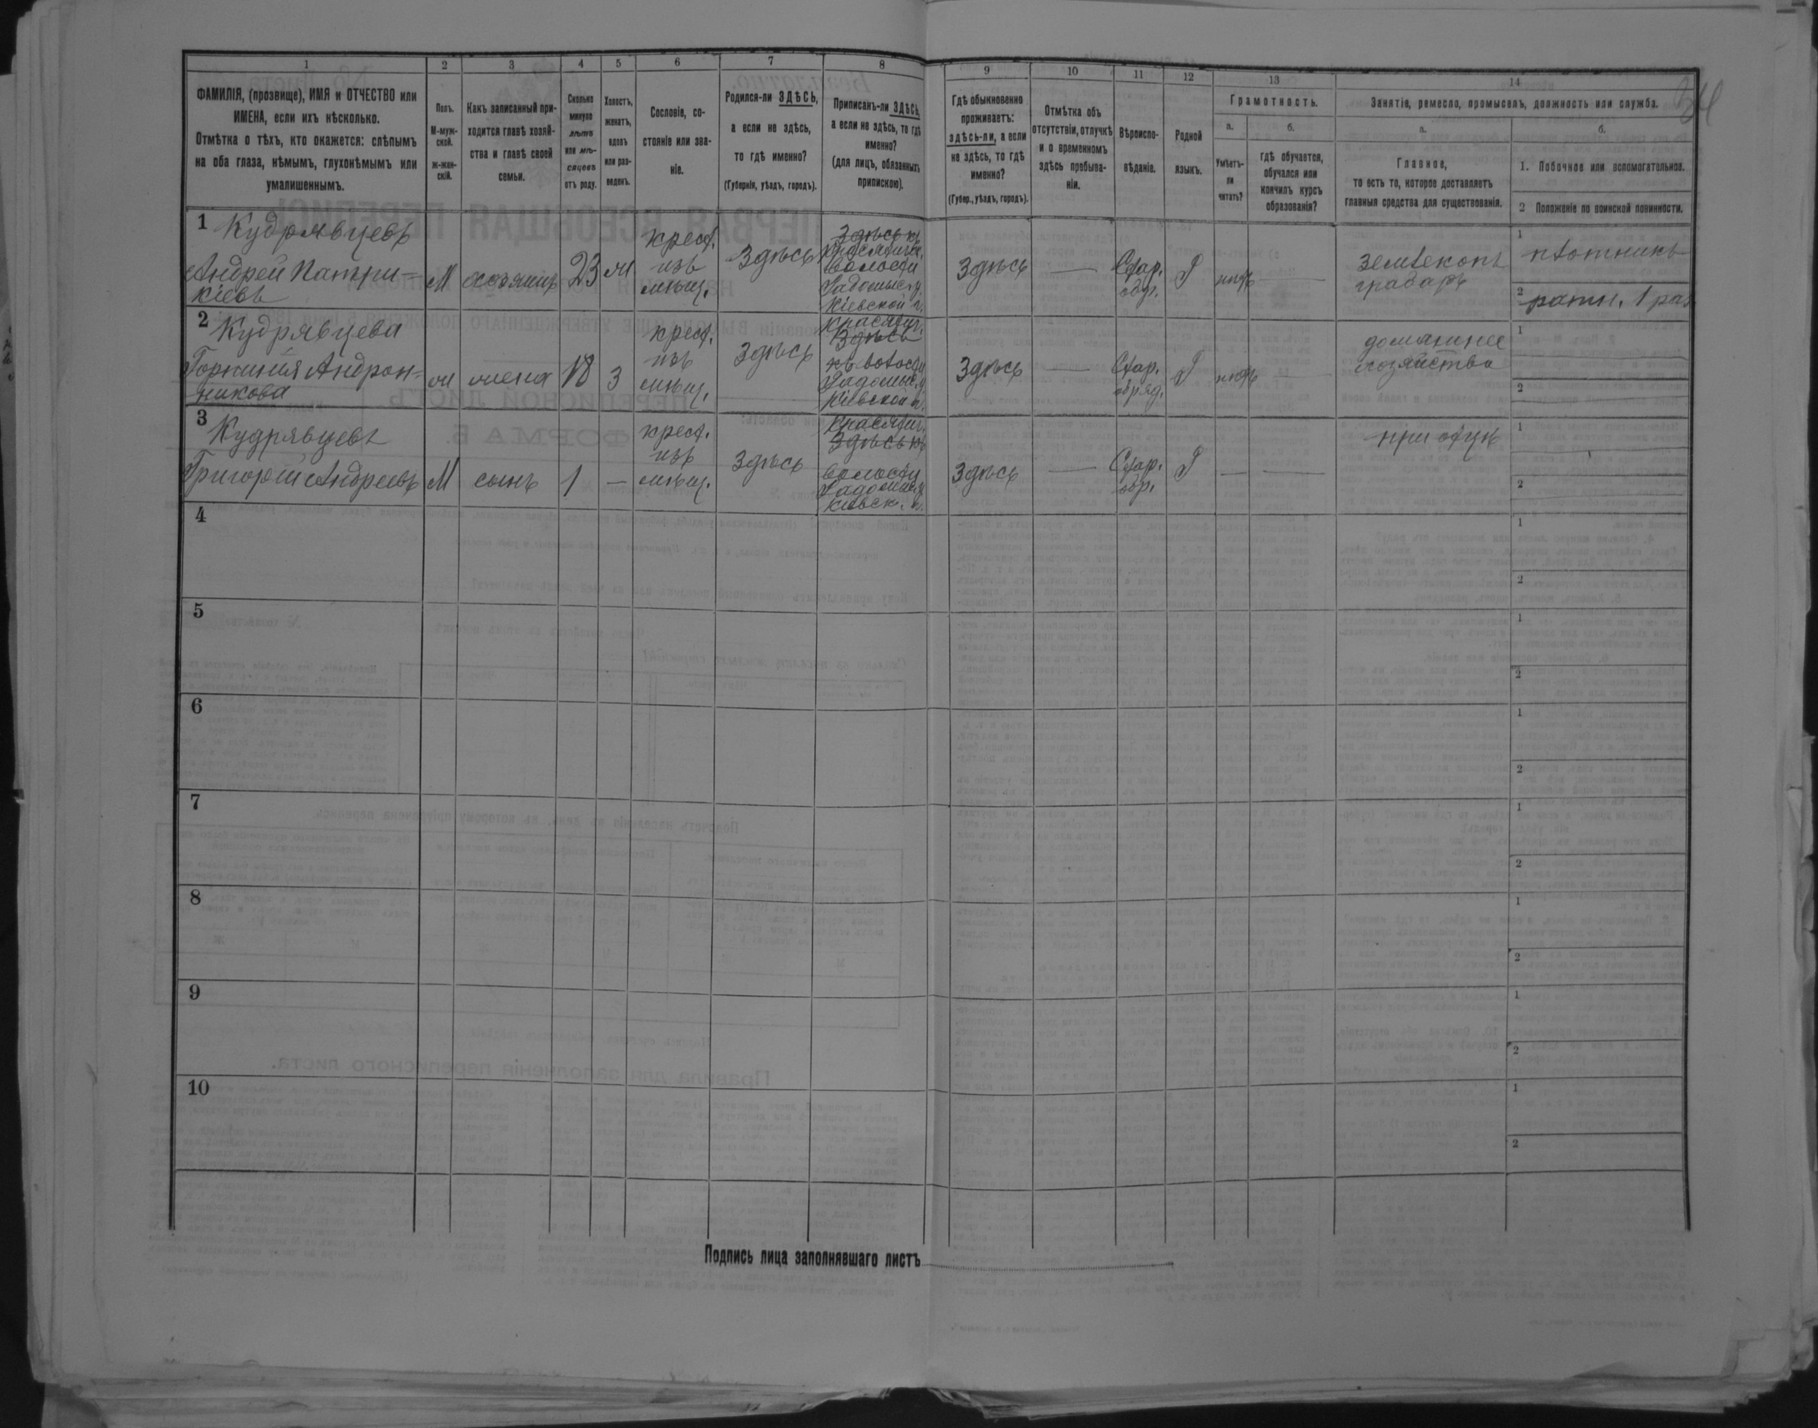 1 2 3 4 5 6 7 8 9 10 11 12 13 14
ФАМИЛІЯ, (прозвище), ИМЯ и ОТЧЕСТВО или
ИМЕНА, если ихъ нѣсколько.
Отмѣтка о тѣхъ, кто окажется: слѣпымъ
на оба глаза, нѣмымъ, глухонѣмымъ или
умалишеннымъ.
Полъ.
М-муж-
ской.
ж-жен-
скій.
Какъ записанный при-
ходится главѣ хозяй-
ства и главѣ своей
семьи.
Сколько
минуло
лѣтъ
или мѣ-
сяцевъ
отъ роду.
Холостъ,
женатъ,
вдовъ
или раз-
веденъ.
Сословіе, со-
стояніе или зва-
ніе.
Родился-ли ЗДѢСЬ,
а если не здѣсь,
то гдѣ именно?
(Губернія, уѣздъ, городъ).
Приписанъ-ли ЗДѢСЬ,
а если не здѣсь, то гдѣ
именно?
(для лицъ, обязанныхъ
припискою).
Гдѣ обыкновенно
проживаетъ:
здѣсь-ли, а если
не здѣсь, то гдѣ
именно?
(Губер., уѣздъ, городъ).
Отмѣтка объ
отсутствіи, отлучкѣ
и о временномъ
здѣсь пребыва-
ніи.
Вѣроиспо-
вѣданіе.
Родной
языкъ.
Грамотность.
а.
Умѣетъ-
ли
читать?
б.
гдѣ обучается,
обучался или
кончилъ курсъ
образованія?
Занятіе, ремесло, промыселъ, должность или служба.
а.
Главное,
то есть то, которое доставляетъ
главныя средства для существованія.
б.
1. Побочное или вспомогательное.
2 Положеніе по воинской повинности.
1 Кудрявцевъ
Андрей Патри-
кіевъ
М хозяинъ 23 ж
крест.
изъ
мѣщ.
Здѣсь
Здѣсь къ
волости
Радомысл. у
Кіевской г.
Здѣсь — Стар.
обр. Р нѣтъ —
землекопъ
грабаръ
1 плотникъ
2 ратн. 1 раз
2 Кудрявцева
Андрон-
никова
ж жена 18 3
крест.
изъ
мѣщ.
Здѣсь
Здѣсь
волости
Радомысл. у
Кіевской г.
Здѣсь — Стар.
обряд. Р нѣтъ —
домашнее
хозяйство
1
2
3 Кудрявцевъ
Григорій Андреевъ М сынъ 1 —
крест.
изъ
мѣщ.
Здѣсь
Здѣсь къ
волости
Радомысл. у
Кіевск. г.
Здѣсь — Стар.
обр. Р — —
при отцѣ
1
2
4 1
2
5 1
2
6 1
2
7 1
2
8 1
2
9 1
2
10 1
2
Подпись лица заполнявшаго листъ